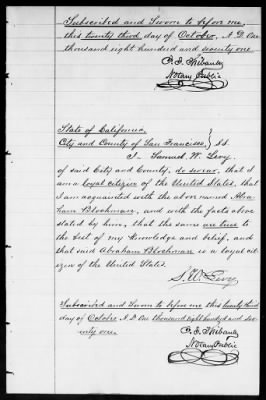 Subscribed and Sworn to before me,
this twenty third day of October, A. D. One
thousand eight hundred and seventy one.
Notary Public
State of California
City and County of San Francisco } SS.
I, Samuel W. Levy,
of said City and County, do swear, that I
am a loyal citizen of the United States, that I
am acquainted with the above named Abra-
ham Blochman, and with the facts above
stated by him, that the same are true to
the best of my knowledge and belief, and
that said Abraham Blochman is a loyal cit-
izen of the United States.
S. W. Levy
Subscribed and Sworn to before me this twenty third
day of October A. D. One thousand eight hundred and sev-
enty one.
Notary Public